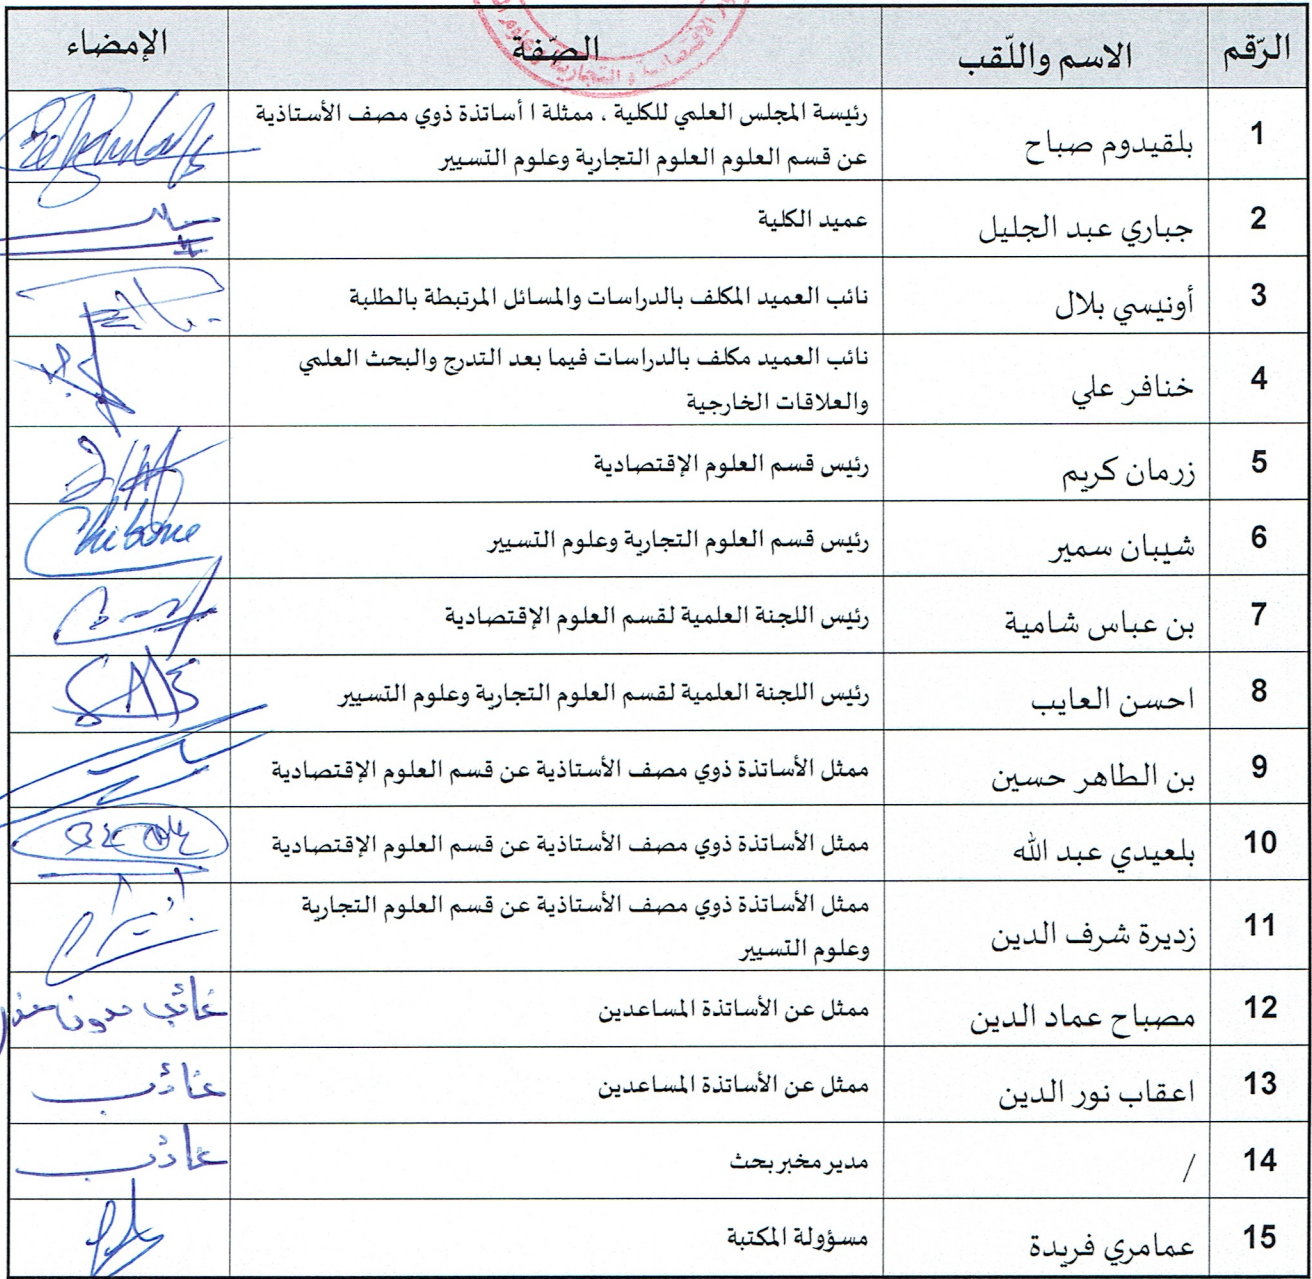 الرّقم الاسم واللّقب الصّفة الإمضاء
1 بلقيدوم صباح رئيسة المجلس العلمي للكلية ، ممثلة ا أساتذة ذوي مصف الأستاذية
عن قسم العلوم العلوم التجارية وعلوم التسيير
2 جباري عبد الجليل عميد الكلية
3 أونيسي بلال نائب العميد المكلف بالدراسات والمسائل المرتبطة بالطلبة
4 خنافر علي نائب العميد مكلف بالدراسات فيما بعد التدرج والبحث العلمي
والعلاقات الخارجية
5 زرمان كريم رئيس قسم العلوم الإقتصادية
6 شيبان سمير رئيس قسم العلوم التجارية وعلوم التسيير
7 بن عباس شامية رئيس اللجنة العلمية لقسم العلوم الإقتصادية
8 احسن العايب رئيس اللجنة العلمية لقسم العلوم التجارية وعلوم التسيير
9 بن الطاهر حسين ممثل الأساتذة ذوي مصف الأستاذية عن قسم العلوم الإقتصادية
10 بلعيدي عبد الله ممثل الأساتذة ذوي مصف الأستاذية عن قسم العلوم الإقتصادية
11 زديرة شرف الدين ممثل الأساتذة ذوي مصف الأستاذية عن قسم العلوم التجارية
وعلوم التسيير
12 مصباح عماد الدين ممثل عن الأساتذة المساعدين غائب بدون عذر
13 اعقاب نور الدين ممثل عن الأساتذة المساعدين غائب
14 / مدير مخبر بحث غائب
15 عمامري فريدة مسؤولة المكتبة